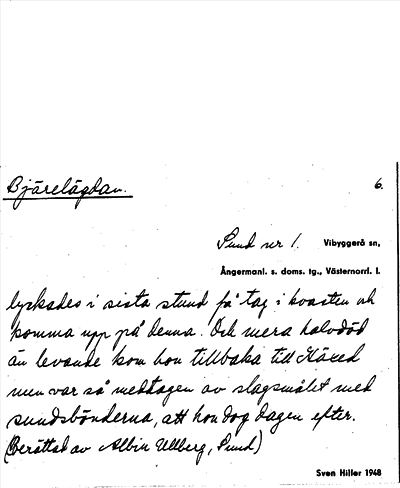 Bjärelägdan. 6.
Sund nr 1. Vibyggerå sn,
Ångermanl. s. doms. tg., Västernorrl. l.
lyckades i sista stund få tag i kvasten och
komma upp på denna. Och mera halvdöd
än levande kom hon tillbaka till Häxed
men var så medtagen av slagsmålet med
sundsbönderna, att hon dog dagen efter.
(Berättad av Albin Ullberg, Sund)
Sven Hiller 1948